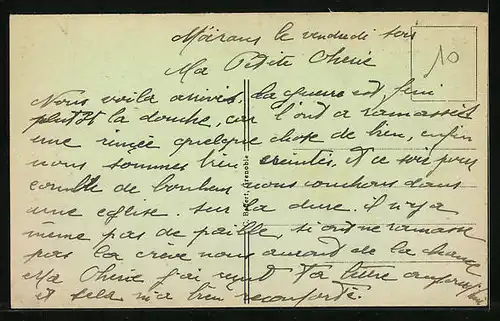 Moirans le vendredi soir
10
Ma Petite Cherie
Nous voila arrivés, la guerre est fini
plutôt la douche, car l'on a ramassé
une rincée quelque chose de bien, enfin
nous sommes bien ereintés, et ce soir pour
comble de bonheur nous couchons dans
une eglise. sur la dure. il n'y a
même pas de paille, si on ne ramasse
pas la crève nous auront de la chance
Ma Cherie j'ai reçut Ta lettre aujourd'hui
et sela m'a bien reconforté.
Grenoble